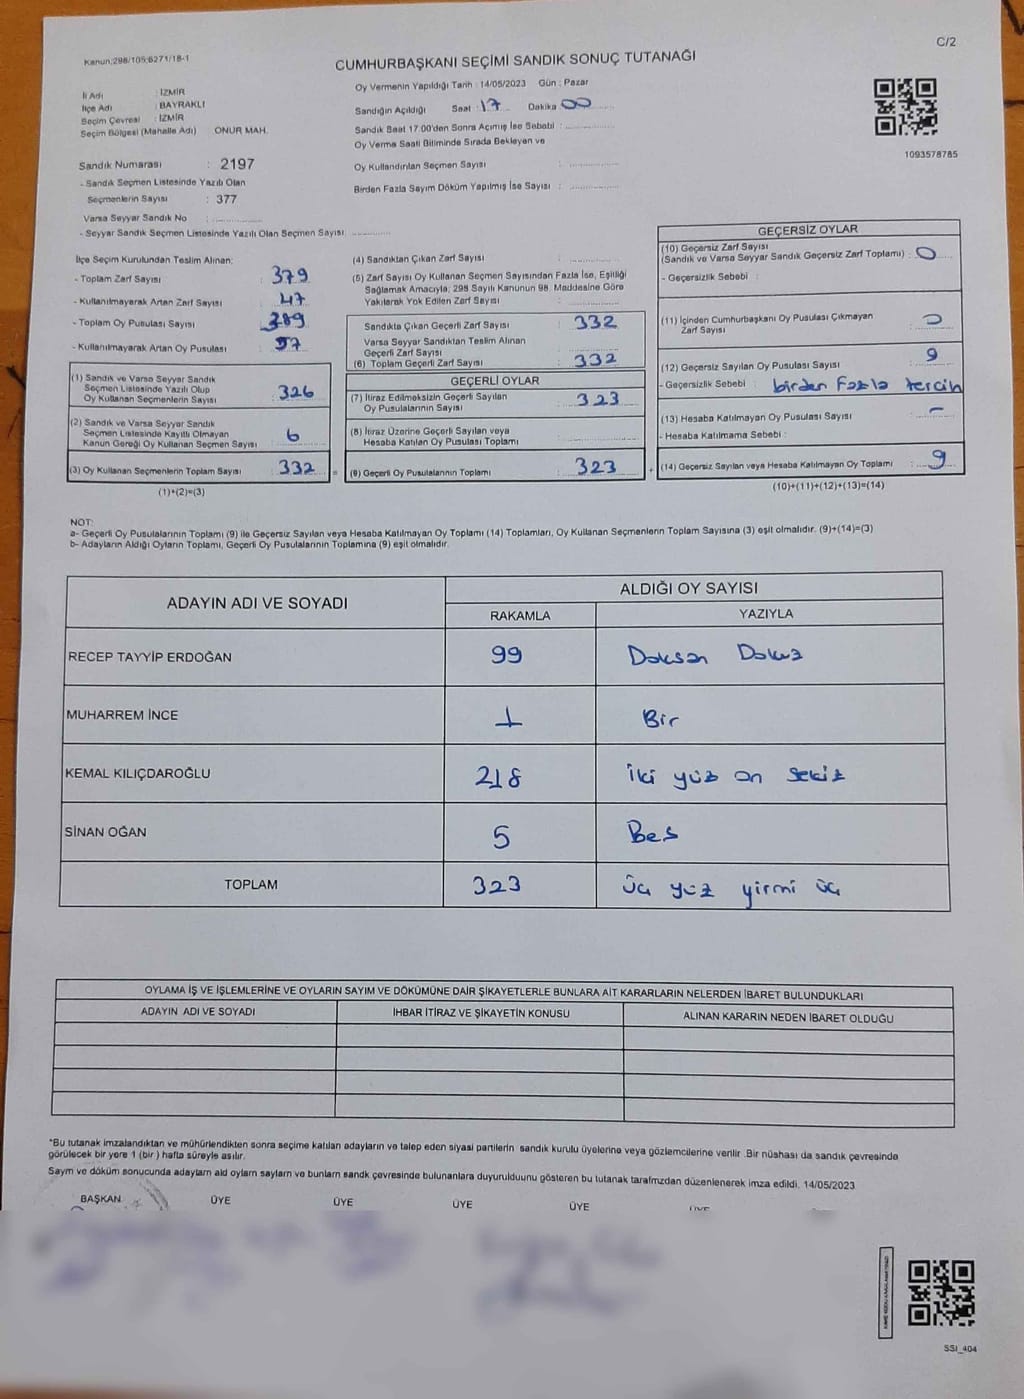 C/2
Kanun:298/105;6271/18-1
CUMHURBAŞKANI SEÇİMİ SANDIK SONUÇ TUTANAĞI
İl Adı : İZMİR
İlçe Adı : BAYRAKLI
Seçim Çevresi : İZMİR
Seçim Bölgesi (Mahalle Adı) ONUR MAH.
Sandık Numarası : 2197
- Sandık Seçmen Listesinde Yazılı Olan
Seçmenlerin Sayısı : 377
Varsa Seyyar Sandık No :
- Seyyar Sandık Seçmen Listesinde Yazılı Olan Seçmen Sayısı:
Oy Vermenin Yapıldığı Tarih : 14/05/2023 Gün : Pazar
Sandığın Açıldığı Saat : 17 Dakika 00
Sandık Saat 17.00'den Sonra Açımış İse Sebebi :
Oy Verma Saati Bitiminde Sırada Bekleyen ve
Oy Kullandırılan Seçmen Sayısı :
Birden Fazla Sayım Döküm Yapılmış İse Sayısı :
1093578785
İlçe Seçim Kurulundan Teslim Alınan:
- Toplam Zarf Sayısı : 379
- Kullanılmayarak Artan Zarf Sayısı : 47
- Toplam Oy Pusulası Sayısı : 389
- Kullanılmayarak Artan Oy Pusulası : 57
(1) Sandık ve Varsa Seyyar Sandık
Seçmen Listesinde Yazılı Olup
Oy Kullanan Seçmenlerin Sayısı : 326
(2) Sandık ve Varsa Seyyar Sandık
Seçmen Listesinde Kayıtlı Olmayan
Kanun Gereği Oy Kullanan Seçmen Sayısı : 6
(3) Oy Kullanan Seçmenlerin Toplam Sayısı : 332 =
(1)+(2)=(3)
(4) Sandıktan Çıkan Zarf Sayısı :
(5) Zarf Sayısı Oy Kullanan Seçmen Sayısından Fazla İse, Eşitliği
Sağlamak Amacıyla; 298 Sayılı Kanunun 98. Maddesine Göre
Yakılarak Yok Edilen Zarf Sayısı :
Sandıkta Çıkan Geçerli Zarf Sayısı : 332
Varsa Seyyar Sandıktan Teslim Alınan
Geçerli Zarf Sayısı :
(6) Toplam Geçerli Zarf Sayısı : 332
GEÇERLİ OYLAR
(7) İtiraz Edilmeksizin Geçerli Sayılan
Oy Pusulalarının Sayısı : 323
(8) İtiraz Üzerine Geçerli Sayılan veya
Hesaba Katılan Oy Pusulası Toplamı :
(9) Geçerli Oy Pusulalarının Toplamı : 323 +
GEÇERSİZ OYLAR
(10) Geçersiz Zarf Sayısı
(Sandık ve Varsa Seyyar Sandık Geçersiz Zarf Toplamı) : 0
- Geçersizlik Sebebi :
(11) İçinden Cumhurbaşkanı Oy Pusulası Çıkmayan
Zarf Sayısı : 0
(12) Geçersiz Sayılan Oy Pusulası Sayısı : 9
- Geçersizlik Sebebi : birden Fazla tercih
(13) Hesaba Katılmayan Oy Pusulası Sayısı : -
- Hesaba Katılmama Sebebi :
(14) Geçersiz Sayılan veya Hesaba Katılmayan Oy Toplamı : 9
(10)+(11)+(12)+(13)=(14)
NOT:
a- Geçerli Oy Pusulalarının Toplamı (9) ile Geçersiz Sayılan veya Hesaba Katılmayan Oy Toplamı (14) Toplamları, Oy Kullanan Seçmenlerin Toplam Sayısına (3) eşit olmalıdır. (9)+(14)=(3)
b- Adayların Aldığı Oyların Toplamı, Geçerli Oy Pusulalarının Toplamına (9) eşit olmalıdır.
ADAYIN ADI VE SOYADI
ALDIĞI OY SAYISI
RAKAMLA YAZIYLA
RECEP TAYYİP ERDOĞAN 99 Doksan Dokuz
MUHARREM İNCE 1 Bir
KEMAL KILIÇDAROĞLU 218 iki yüz on sekiz
SİNAN OĞAN 5 Beş
TOPLAM 323 üç yüz yirmi üç
OYLAMA İŞ VE İŞLEMLERİNE VE OYLARIN SAYIM VE DÖKÜMÜNE DAİR ŞİKAYETLERLE BUNLARA AİT KARARLARIN NELERDEN İBARET BULUNDUKLARI
ADAYIN ADI VE SOYADI İHBAR İTİRAZ VE ŞİKAYETİN KONUSU ALINAN KARARIN NEDEN İBARET OLDUĞU
*Bu tutanak imzalandıktan ve mühürlendikten sonra seçime katılan adayların ve talep eden siyasi partilerin sandık kurulu üyelerine veya gözlemcilerine verilir .Bir nüshası da sandık çevresinde
görülecek bir yere 1 (bir ) hafta süreyle asılır.
Sayım ve döküm sonucunda adayların ald oyların sayların ve bunların sandk çevresinde bulunanlara duyurulduunu gösteren bu tutanak tarafmzdan düzenlenerek imza edildi. 14/05/2023
BAŞKAN ÜYE ÜYE ÜYE ÜYE ÜYE
SSI_404